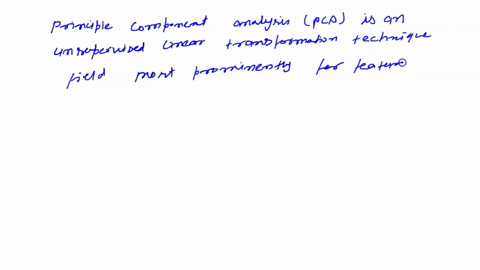 Principle component analysis (PCA) is an
unsupervised linear transformation technique
field most prominently for feature